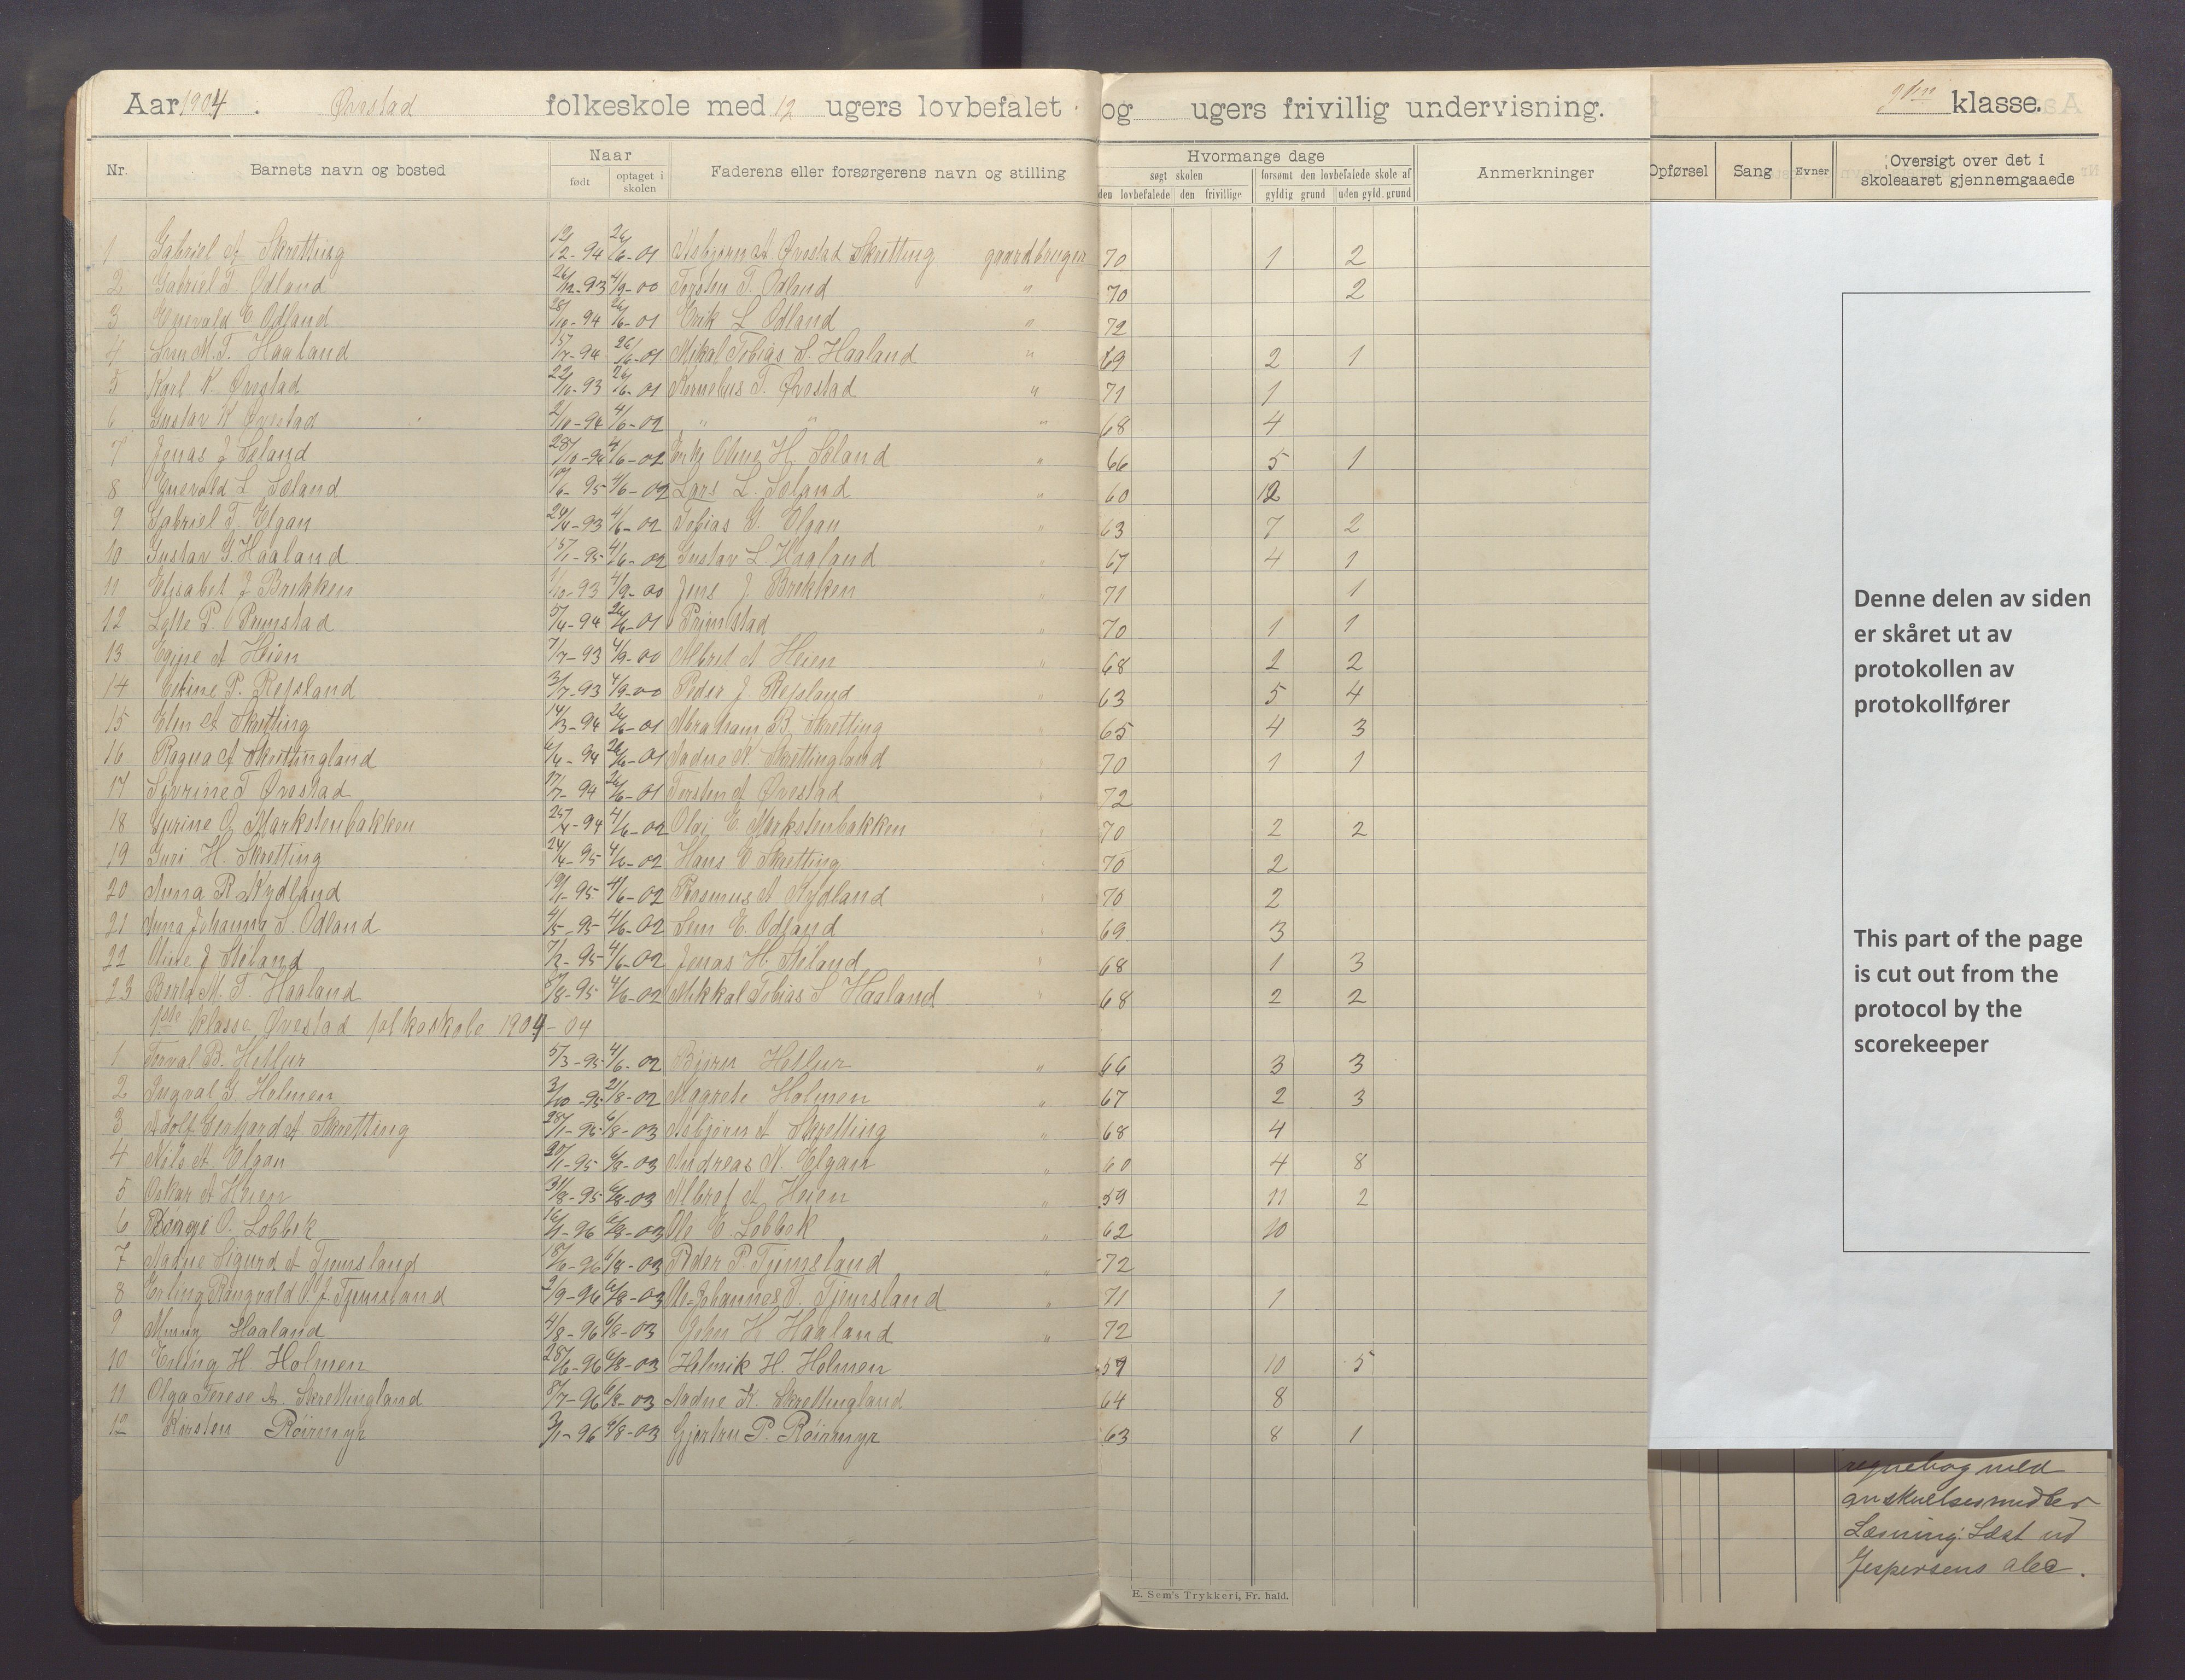 Aar 1904. Øvestad folkeskole med 12 ugers lovbefalet og ugers frivillig undervisning. klasse.
Nr. Barnets navn og bosted Naar født optaget i skolen Faderens eller forsørgerens navn og stilling Hvormange dage søgt skolen den lovbefalede den frivillige forsømt den lovbefalede skole af gyldig grund uden gyld. grund Anmerkninger Opførsel Sang Evner Oversigt over det i skoleaaret gjennemgaaede
1 Gabriel A Skretting 12/12-94 26/6-01 Asbjørn A. Øvestad Skretting gaardbruger 70 1 2
2 Gabriel T. Odland 26/12-93 4/9-00 Torsten T. Odland " 70 2
3 Enevald E. Odland 28/10-94 26/6-01 Erik L Odland " 72
4 M. T. Haaland 15/7-94 26/6-01 Mikal Tobias S. Haaland " 69 2 1
5 Karl K. Øvestad 22/10-93 26/6-01 Kornelius T. Øvestad " 71 1
6 Gustav K Øvestad 2/10-94 4/6-02 " " " 68 4
7 Jonas J Søland 28/10-94 4/6-02 Enke Oline H. Søland " 66 5 1
8 Enevald L Søland 4/6-02 Lars L. Søland " 60 12
9 Gabriel T. Elgan 24/4-93 4/6-02 Tobias G. Elgan " 63 7 2
10 Gustav G. Haaland 15/1-95 4/6-02 Gustav L Haaland " 67 4 1
11 Elisabet J Brekken 4/9-00 Jens J. Brekken " 71 1
12 P. Primstad 5/4-94 26/6-01 Primstad " 70 1 1
13 A Heien 7/7-93 4/9-00 Albret A Heien " 68 2 2
14 P. Refsland 3/7-93 4/9-00 Peder J Refsland " 63 5 4
15 Elen A Skretting 14/3-94 26/6-01 Abraham B. Skretting 65 4 3
16 Ragna A Skrettingland 6/4-94 26/6-01 Aadne K. Skrettingland 70 1 1
17 Sivrine T Øvestad 17/7-94 26/6-01 Torsten A Øvestad 72
18 Gurine O Markstenbakken 25/4-94 4/6-02 Olai E. Markstenbakken 70 2 2
19 Guri H. Skretting 24/4-95 4/6-02 Hans E Skretting 70 2
20 Anna R Nydland 19/1-95 4/6-02 Rasmus A Nydland 70 2
21 Anna Johanna S. Odland 4/5-95 4/6-02 Sem E. Odland 69 3
22 Oline J Søland 7/2-95 4/6-02 Jonas H. Søland 68 1 3
23 Berta M. T. Haaland 4/6-02 Mikkal Tobias S Haaland 68 2 2
1ste klasse Øvestad folkeskole 1904-04
1 Torval B. Hetlur 5/3-95 4/6-02 Bjørn Hetlur " 66 3 3
2 Ingval G. Holmen 3/10-95 2/8-02 Magrete Holmen " 67 2 3
3 Adolf Gerhard A. Skretting 28/1-96 6/8-03 Asbjørn A Skretting " 68 4
4 Nils A. Elgan 20/1-95 6/8-03 Andreas N. Elgan " 60 4 8
5 Oskar A Heien 31/8-95 6/8-03 Albret A Heien " 59 11 2
6 Børge O. Lobbek 16/1-96 6/8-03 Ole E. Lobbek " 62 10
7 Aadne Sigurd A Tjemsland 18/6-96 6/8-03 Peder P. Tjemsland 72
8 Erling Rangvald O. J. Tjemsland 2/9-96 6/8-03 Ole Johannes T. Tjemsland " 71 1
9 Minny Haaland 4/8-96 6/8-03 John H Haaland " 72
10 Erling H Holmen 28/6-96 6/8-03 Helmik H. Holmen 57 10 5
11 Olga Terese A. Skrettingland 8/7-96 6/8-03 Aadne K. Skrettingland 64 8
12 Kirsten Røirmyr 3/1-96 6/8-03 Gjertru P. Røirmyr 63 8 1
E. Sem's Trykkeri, Fr. hald.
Denne delen av siden
er skåret ut av
protokollen av
protokollfører
This part of the page
is cut out from the
protocol by the
scorekeeper
regnebog med
anskuelsesmidler
Læsning: Læst ud
Jespersens abc.